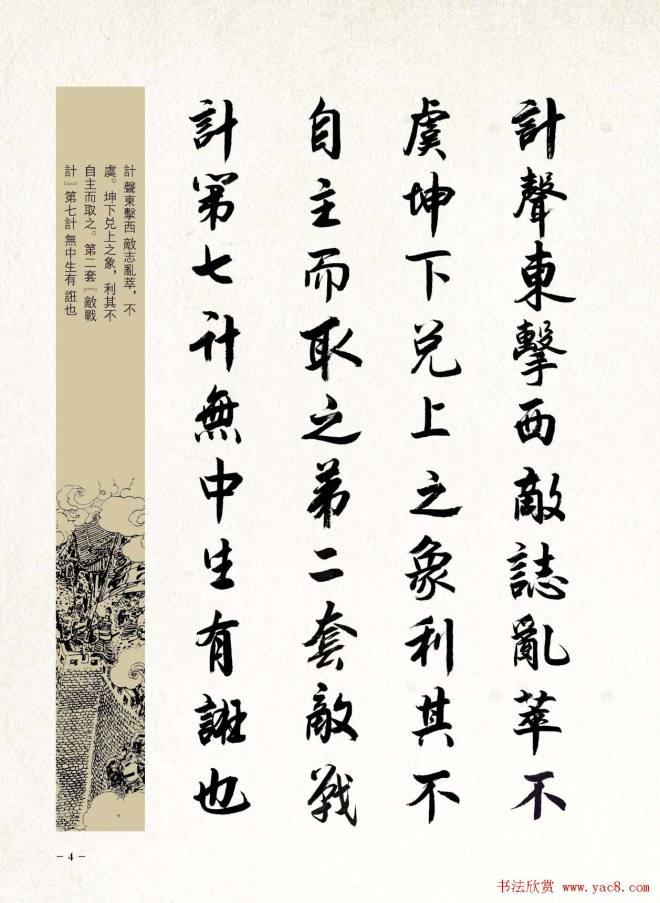 計聲東擊西敵誌亂萃不
虞坤下兑上之象利其不
自主而取之第二套敵戰
計第七計無中生有誑也
計 聲東擊西 敵志亂萃，不
虞。坤下兑上之象，利其不
自主而取之。第二套『敵戰
計』第七計 無中生有 誑也
- 4 -
书法欣赏 www.yac8.com